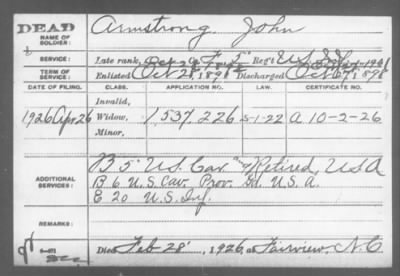 DEAD
NAME OF SOLDIER:
Armstrong John
SERVICE:
Late rank, Reg't U.S.
TERM OF SERVICE:
Enlisted Oct 28, 1895 Discharged Oct 27, 1898
DATE OF FILING.
CLASS.
APPLICATION NO.
LAW.
CERTIFICATE NO.
Invalid,
1926 Apr 26 Widow, 1,537,226 5-1-22 A 10-2-26
Minor,
ADDITIONAL SERVICES:
B 5" U.S. Cav. Retired, U.S.A
B 6 U.S. Cav. Prov. Gd. U.S.A.
E 20 U.S. Inf.
REMARKS:
Died Feb 28", 1926, at Fairview, N.C